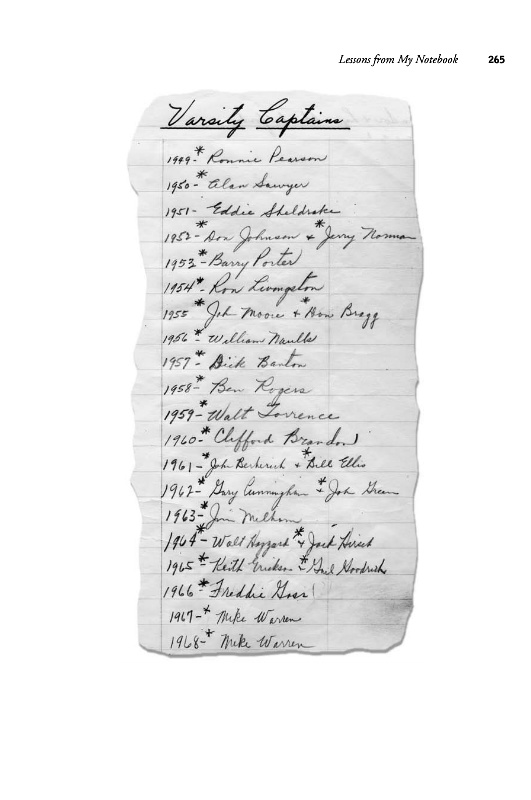 Lessons from My Notebook 265
Varsity Captains
1949-* Ronnie Pearson
1950-* Alan Sawyer
1951- Eddie Sheldrake
1952-* Don Johnson + *Jerry Norman
1953-* Barry Porter
1954*- Ron Livingston
1955 * Joh Moore + *Don Bragg
1956-* William Naulls
1957-* Dick Banton
1958-* Ben Rogers
1959-* Walt Torrence
1960-* Clifford Brandon
1961-* John Berberich + *Bill Ellis
1962-* Gary Cunningham + *Joh Green
1963-* Jim Milhorn
1964-* Walt Hazzard + *Jack Hirsch
1965-* Keith Erickson + *Gail Goodrich
1966-* Freddie Goss
1967-* Mike Warren
1968-* Mike Warren